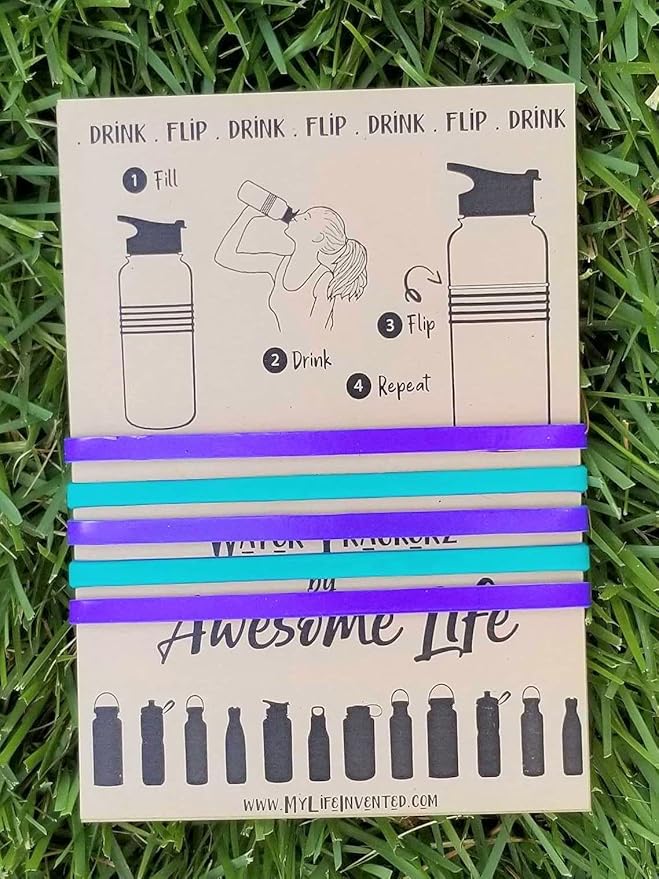 . DRINK . FLIP . DRINK . FLIP . DRINK . FLIP . DRINK
1 Fill
2 Drink
3 Flip
4 Repeat
WATER TRACKERZ
by
Awesome Life
www.MyLifeInvented.com